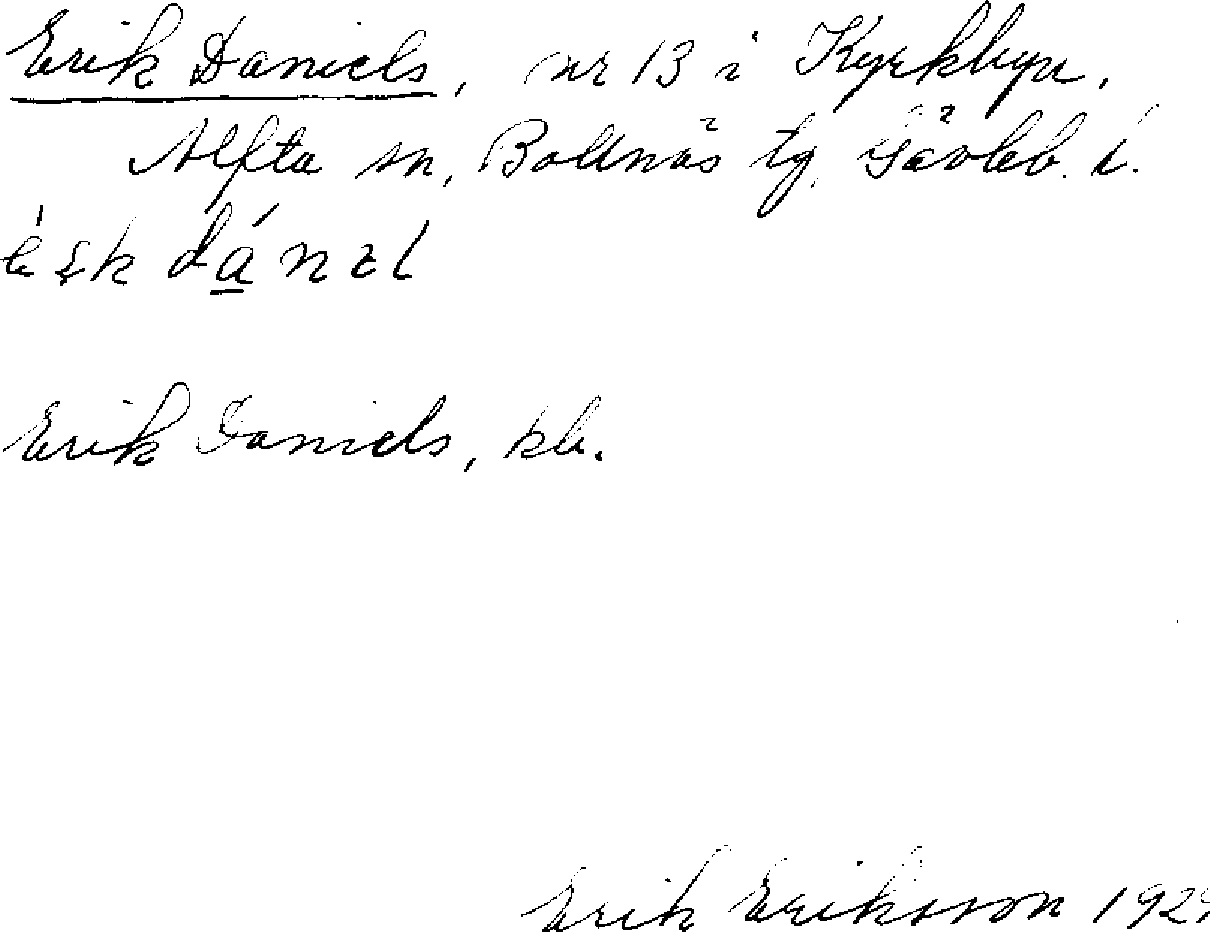 Erik Daniels, nr 13 i Kyrkbyn,
Alfta sn, Bollnäs tg, Gävleb. l.
dánəl
Erik Daniels, kb.
Erik Eriksson